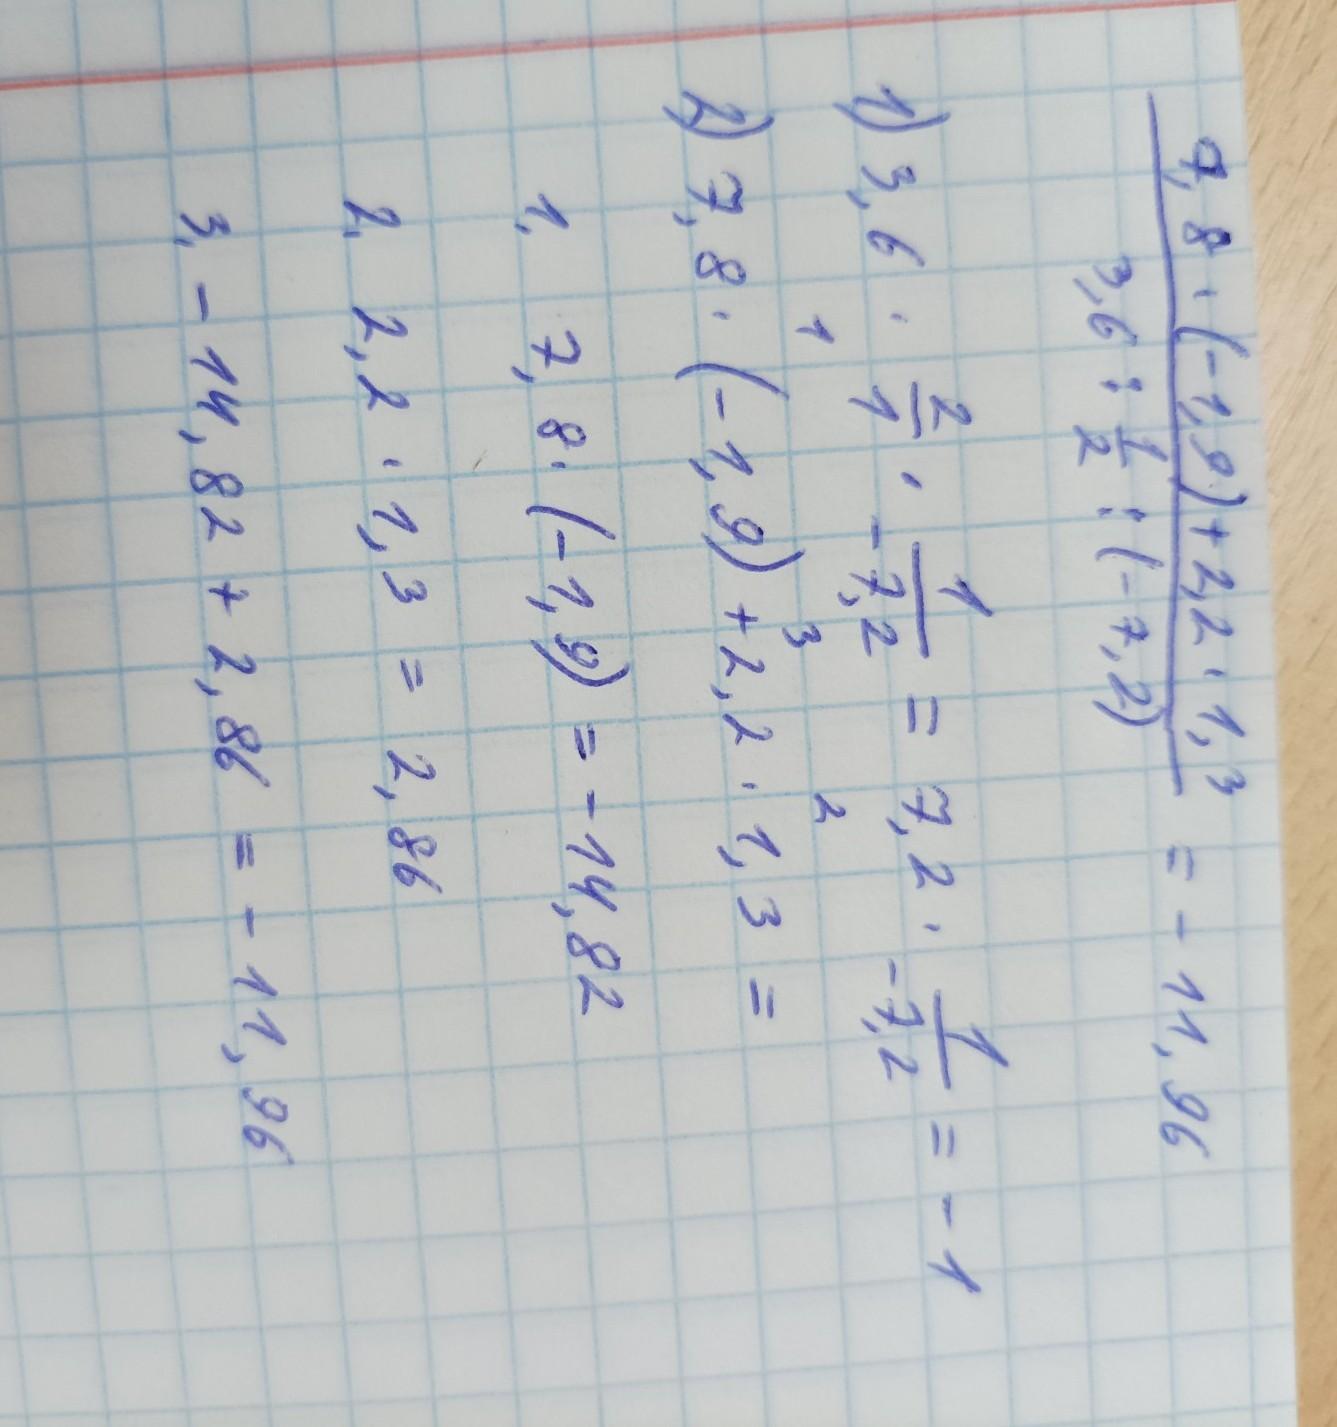 7,8 · (-1,9) + 2,2 · 1,3
3,6 : 1/2 : (-7,2) = - 11,96
1) 3,6 · 2/1 · 1/-7,2 = 7,2 · 1/-7,2 = - 1
1 3 2
2) 7,8 · (-1,9) + 2,2 · 1,3 =
1, 7,8 · (-1,9) = - 14,82
2, 2,2 · 1,3 = 2,86
3, - 14,82 + 2,86 = - 11,96